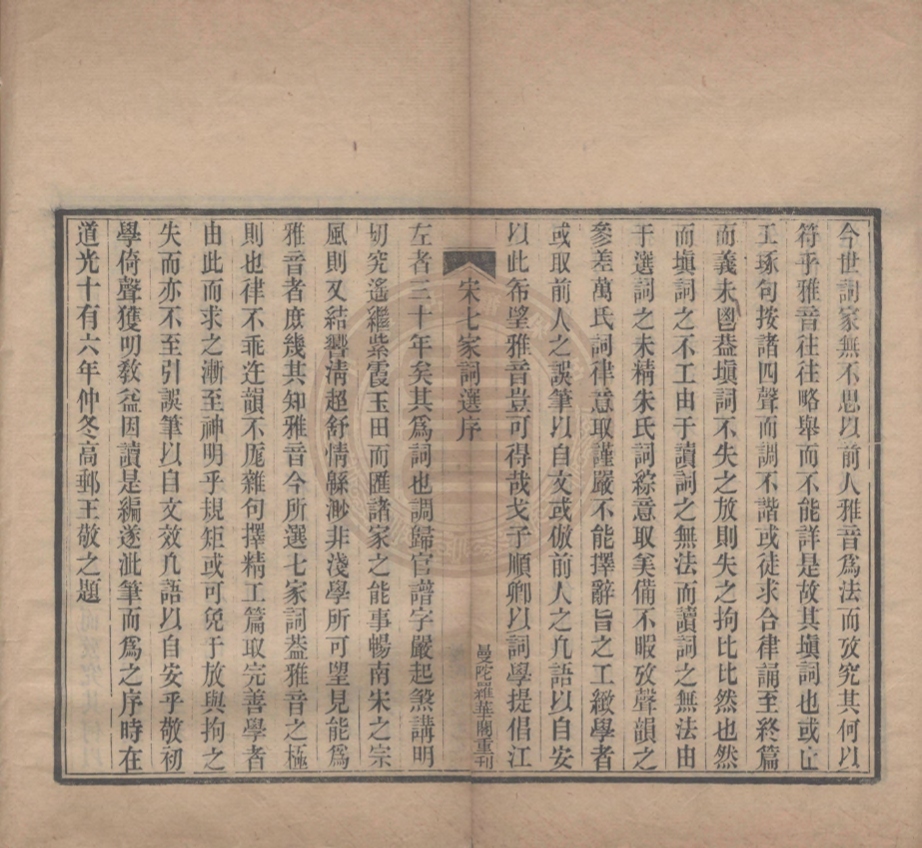 今世詞家無不思以前人雅音爲法而攷究其何以
符乎雅音往往略舉而不能詳是故其塡詞也或
工琢句按諸四聲而調不諧或徒求合律誦至終篇
而義未鬯葢塡詞不失之放則失之拘比比然也然
而塡詞之不工由于讀詞之無法而讀詞之無法由
于選詞之未精朱氏詞綜意取美備不暇攷聲韻之
參差萬氏詞律意取謹嚴不能擇辭旨之工緻學者
或取前人之誤筆以自文或倣前人之凢語以自安
以此希望雅音豈可得哉戈子順卿以詞學提倡江
宋七家詞選序
曼陀羅華閣重刊
左者三十年矣其爲詞也調歸官譜字嚴起煞講明
切究遙繼紫霞玉田而匯諸家之能事暢南宋之宗
風則又結響淸超舒情緜渺非淺學所可望見能爲
雅音者庶幾其知雅音今所選七家詞葢雅音之極
則也律不乖迕韻不厖雜句擇精工篇取完善學者
由此而求之漸至神明乎規矩或可免于放與拘之
失而亦不至引誤筆以自文效凢語以自安乎敬初
學倚聲獲叨敎益因讀是編遂泚筆而爲之序時在
道光十有六年仲冬高郵王敬之題